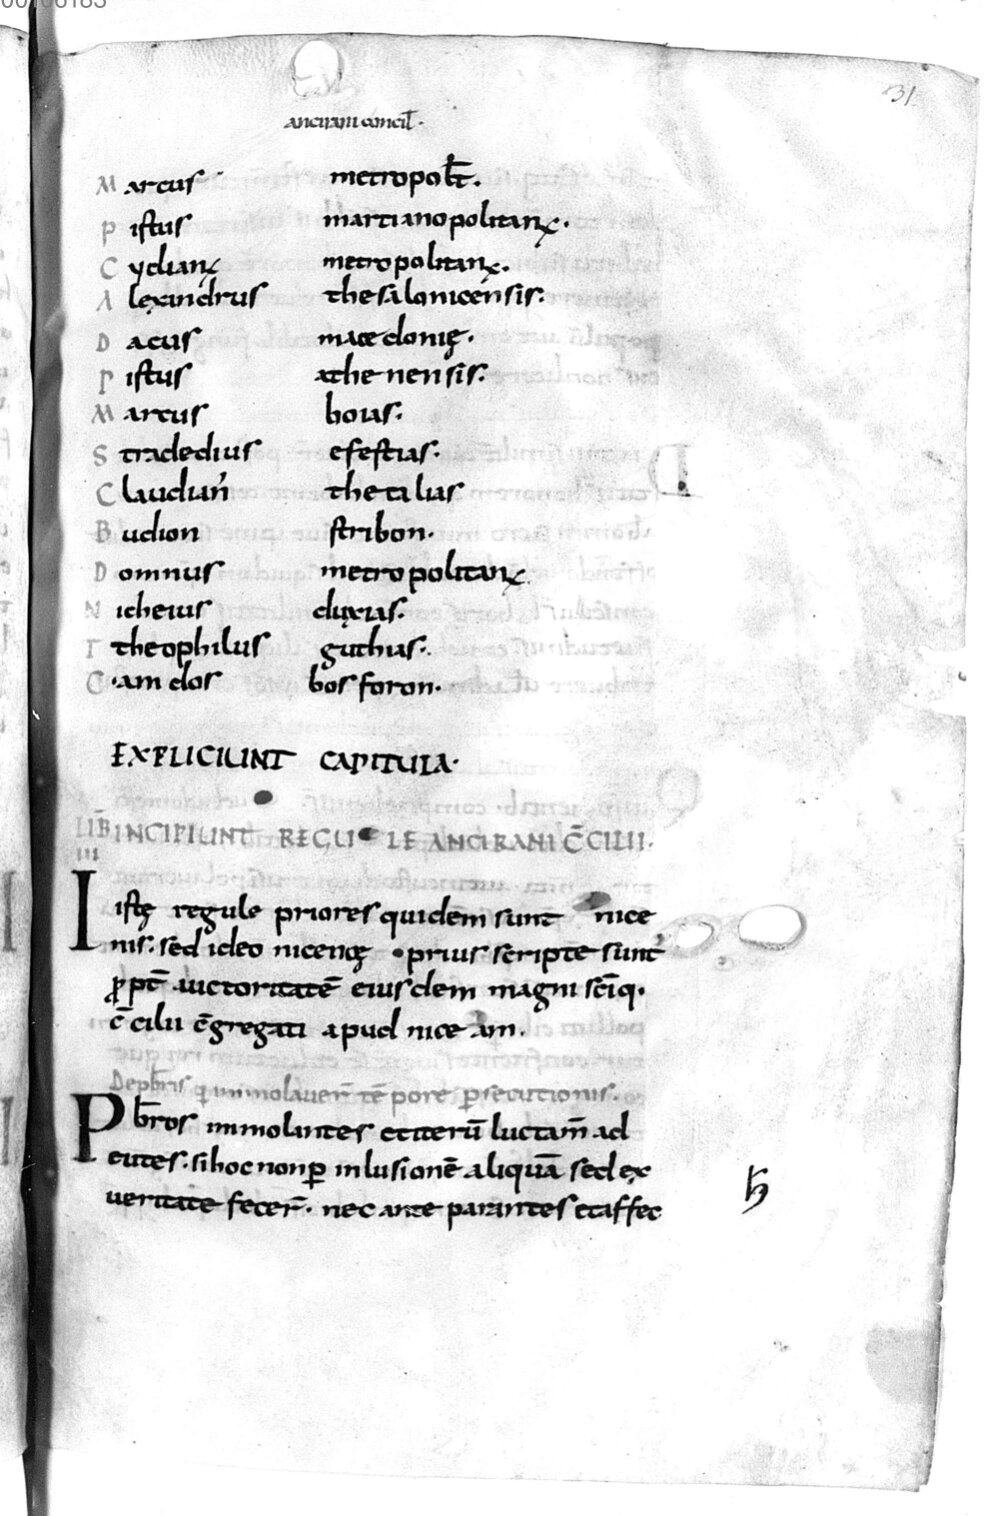 00106183
31
ancirani concil̄.
Marcus metropolt̄.
Pistus martianopolitanꝝ.
Cydianꝝ metropolitanꝝ.
Alexandrus thesalonicensis.
Dacus macedonię.
Pistus athenensis.
Marcus boias.
Stradedius efestias.
Claudian̄ thetalias
Budion stribon.
Domnus metropolitanꝝ.
Nicheius duxias.
Theophilus guthias.
C.amdos bosforon.
EXPLICIUNT CAPITULA.
LIB̄ INCIPIUNT REGULE ANCIRANI C̄CILII.
III
Iistę regule priores quidem sunt nice
nis. sed ideo nicenę prius scripte sunt
ꝓpt̄ auctoritatē eiusdem magni sc̄iq.
c̄cilii c̄gregati apud niceam.
De pb̄ris qui immolaver̄ tēpore ꝑsecutionis.
Pb̄ros immolantes et iterū luctam̄ ad
euntes. si hoc non ꝑ inlusionē aliquā sed ex
veritate fecer̄. nec ante parantes et affec
h